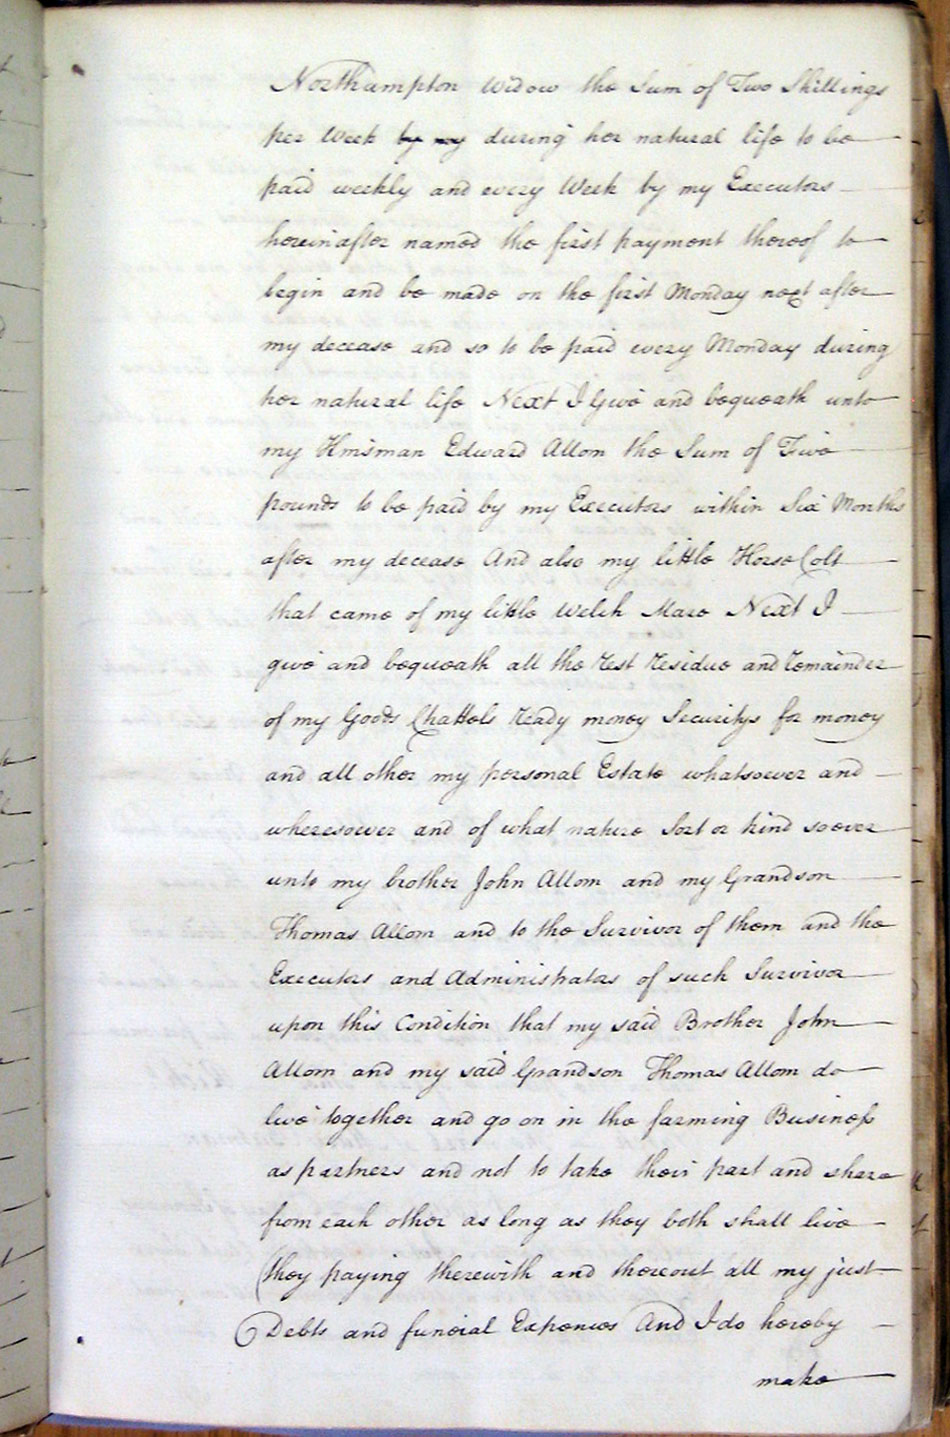 Northampton Widow the Sum of Two Shillings
per Week by my during her natural life to be
paid weekly and every Week by my Executors
hereinafter named the first payment thereof to
begin and be made on the first Monday next after
my decease and so to be paid every Monday during
her natural life Next I Give and bequeath unto
my Kinsman Edward Allom the Sum of Five
pounds to be paid by my Executors within Six Months
after my decease And also my little Horse Colt
that came of my little Welch Mare Next I
give and bequeath all the rest residue and remainder
of my Goods Chattels ready money Securitys for money
and all other my personal Estate whatsoever and
wheresoever and of what nature Sort or kind soever
unto my brother John Allom and my Grandson
Thomas Allom and to the Survivor of them and the
Executors and Administrators of such Survivor
upon this Condition that my said Brother John
Allom and my said Grandson Thomas Allom do
live together and go on in the farming Business
as partners and not to take their part and share
from each other as long as they both shall live
they paying therewith and thereout all my just
Debts and funeral Expences And I do hereby
make